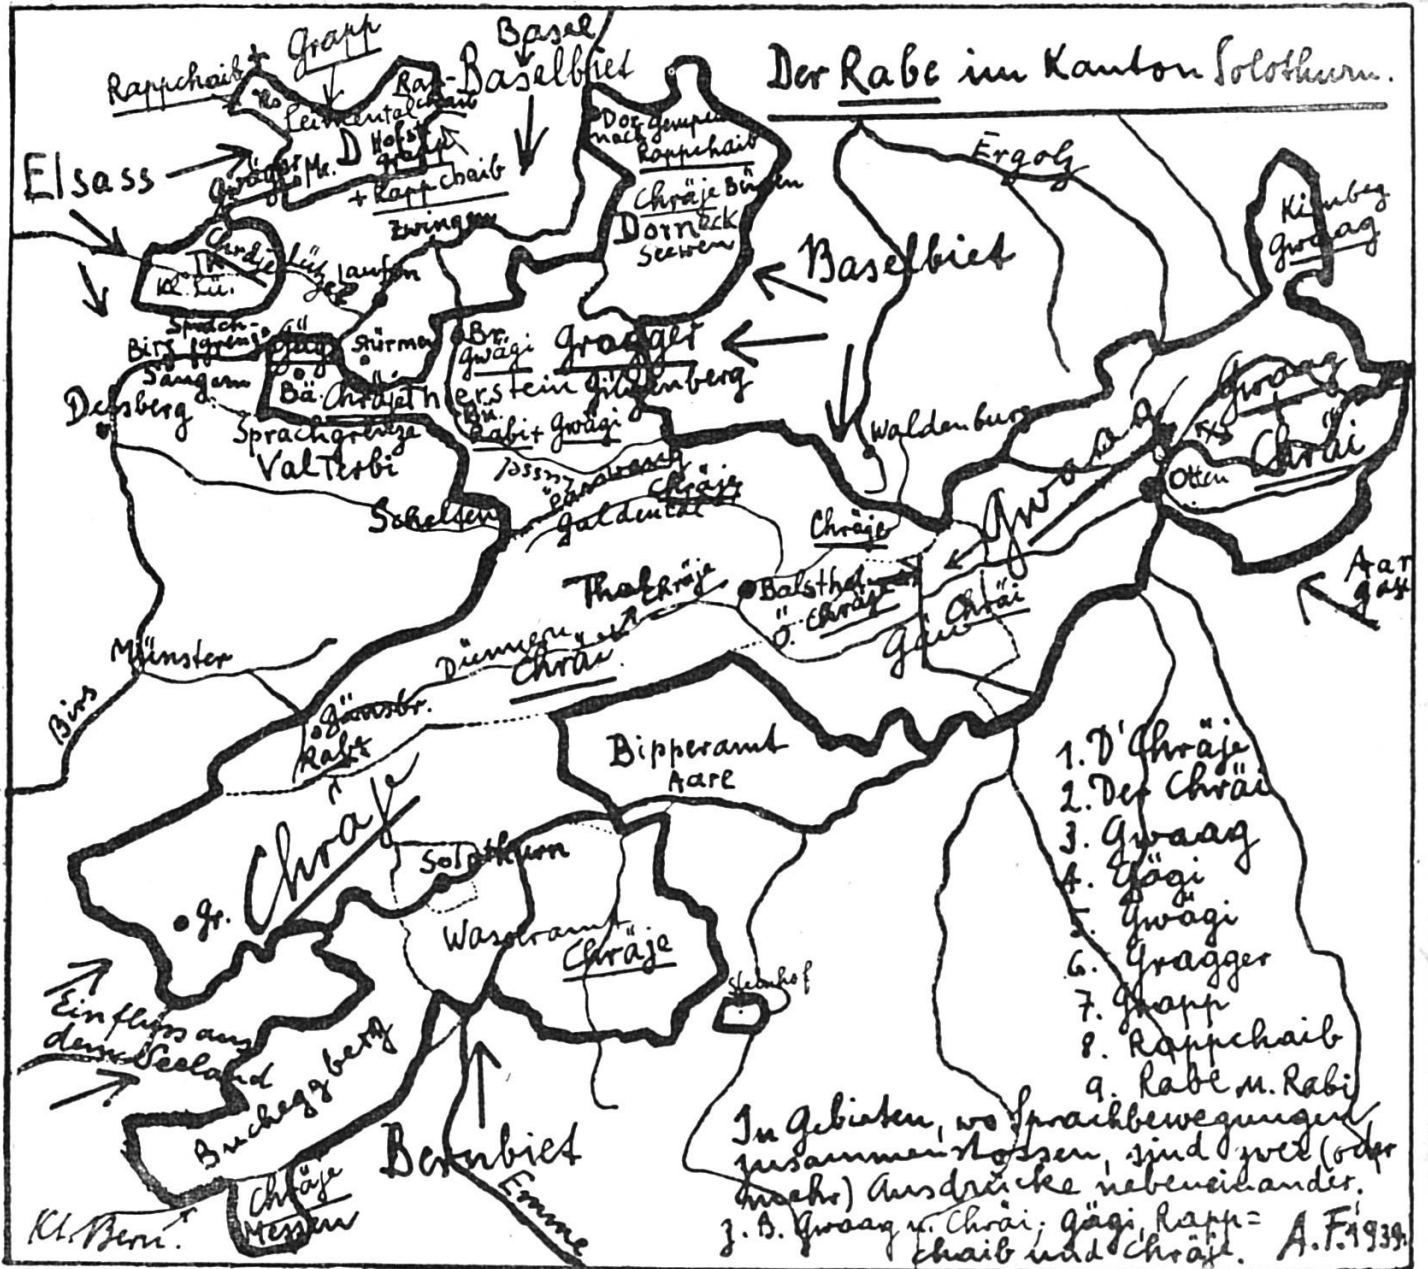 Der Rabe im Kanton Solothurn.
Basel
Grapp
Rappchaib
Baselbiet
Leimental
Hofst.
Grapp
Elsass
+ Rappchaib
Zwingen
Dor-
nach
Gempen
Rappchaib
Chräje Büren
Dorneck
Seewen
Ergolz
Kienbeg
Gwaag
Baselbiet
Kl. Lü.
Laufen
Sprach-
grenze
Birs
Gäg
Bä.
Chräje Th
Br.
Gwägi
Gragger
erstein Gilgenberg
Bu.
Rabi + Gwägi
Delsberg
Sprachgrenze
Val Terbi
Schelten
Passwang
Chräje
Guldental
Waldenburg
Gwaag
Gwaag
Chräi
Olten
Chräje
Thal Chräje
Balsthal
Ö. Chräje
Gäu
Chräi
Aar
gau
Münster
Dünnern
Chräi
Birs
Gänsbr.
Rabe
Bipperamt
Aare
Chräje
Gr.
Solothurn
Wasseramt
Chräje
Steinhof
Einfluss aus
dem Seeland
Bucheggberg
Bernbiet
Emme
Chräje
Messen
Kt. Bern.
1. D'Chräje
2. Der Chräi
3. Gwaag
4. Gägi
5. Gwägi
6. Gragger
7. Grapp
8. Rappchaib
9. Rabe u. Rabi
In Gebieten, wo Sprachbewegungen
zusammenstossen, sind zwei (oder
mehr) Ausdrücke nebeneinander,
z. B. Gwaag u. Chräi; Gägi, Rapp=
chaib und Chräje. A.F. 1939.